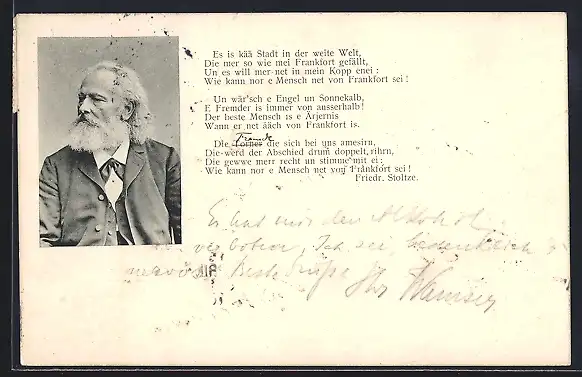 Es is kää Stadt in der weite Welt,
Die mer so wie mei Frankfort gefällt,
Un es will mer net in mein Kopp enei:
Wie kann nor e Mensch net von Frankfort sei!
Un wär'sch e Engel un Sonnekalb,
E Fremder is immer von ausserhalb!
Der beste Mensch is e Ärjernis
Wann er net ääch von Frankfort is.
Fremde
Die Torner die sich bei uns amesirn,
Die werd der Abschied drum doppelt rihrn,
Die gewwe merr recht un stimme mit ei:
Wie kann nor e Mensch net von Frankfort sei!
Friedr. Stoltze.
Er hat mir den Alkohol
verboten, Ich sei bedenklich
nervös Beste Grüße Ihr